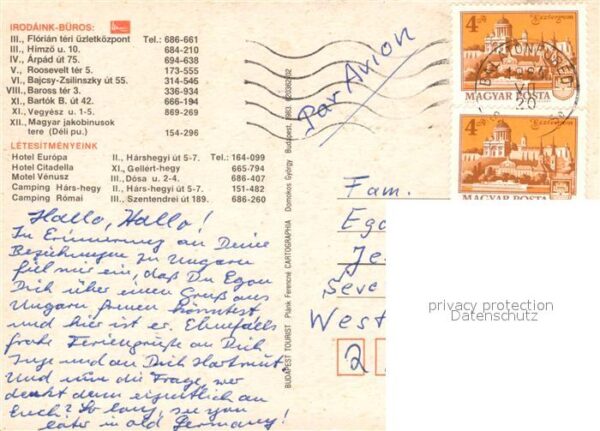 IRODÁINK-BÜROS:
III., Flórián téri üzletközpont Tel.: 686-661
III., Hímző u. 10. 684-210
IV., Árpád út 75. 694-638
V., Roosevelt tér 5. 173-555
VI., Bajcsy-Zsilinszky út 55. 314-545
VIII., Baross tér 3. 336-934
XI., Bartók B. út 42. 666-194
XI., Vegyész u. 1-5. 869-269
XII., Magyar jakobinusok
tere (Déli pu.) 154-296
LÉTESÍTMÉNYEINK
Hotel Európa II., Hárshegyi út 5-7. Tel.: 164-099
Hotel Citadella XI., Gellért-hegy 665-794
Motel Vénusz III., Dósa u. 2-4. 686-407
Camping Hárs-hegy II., Hárs-hegyi út 5-7. 151-482
Camping Római III., Szentendrei út 189. 686-260
Hallo, Hallo!
In Erinnerung an Deine
Beziehungen zu Ungarn
fiel mir ein, daß Du Egon
Dich über einen Gruß aus
Ungarn freuen könntest
und hier ist er. Ebenfalls
frohe Feriengrüße an Dich
Inge und an Dich Hartmut.
Und nun die Frage, wer
denkt denn eigentlich an
Euch? So long, see you
later in old Germany!
BUDAPEST TOURIST Plank Ferencné CARTOGRAPHIA Domokos György Budapest, 1983
Par Avion
4 Ft Esztergom
MAGYAR POSTA
4 Esztergom
MAGYAR POSTA
Fam.
Ego
Je
Seve
West
2
privacy protection
Datenschutz